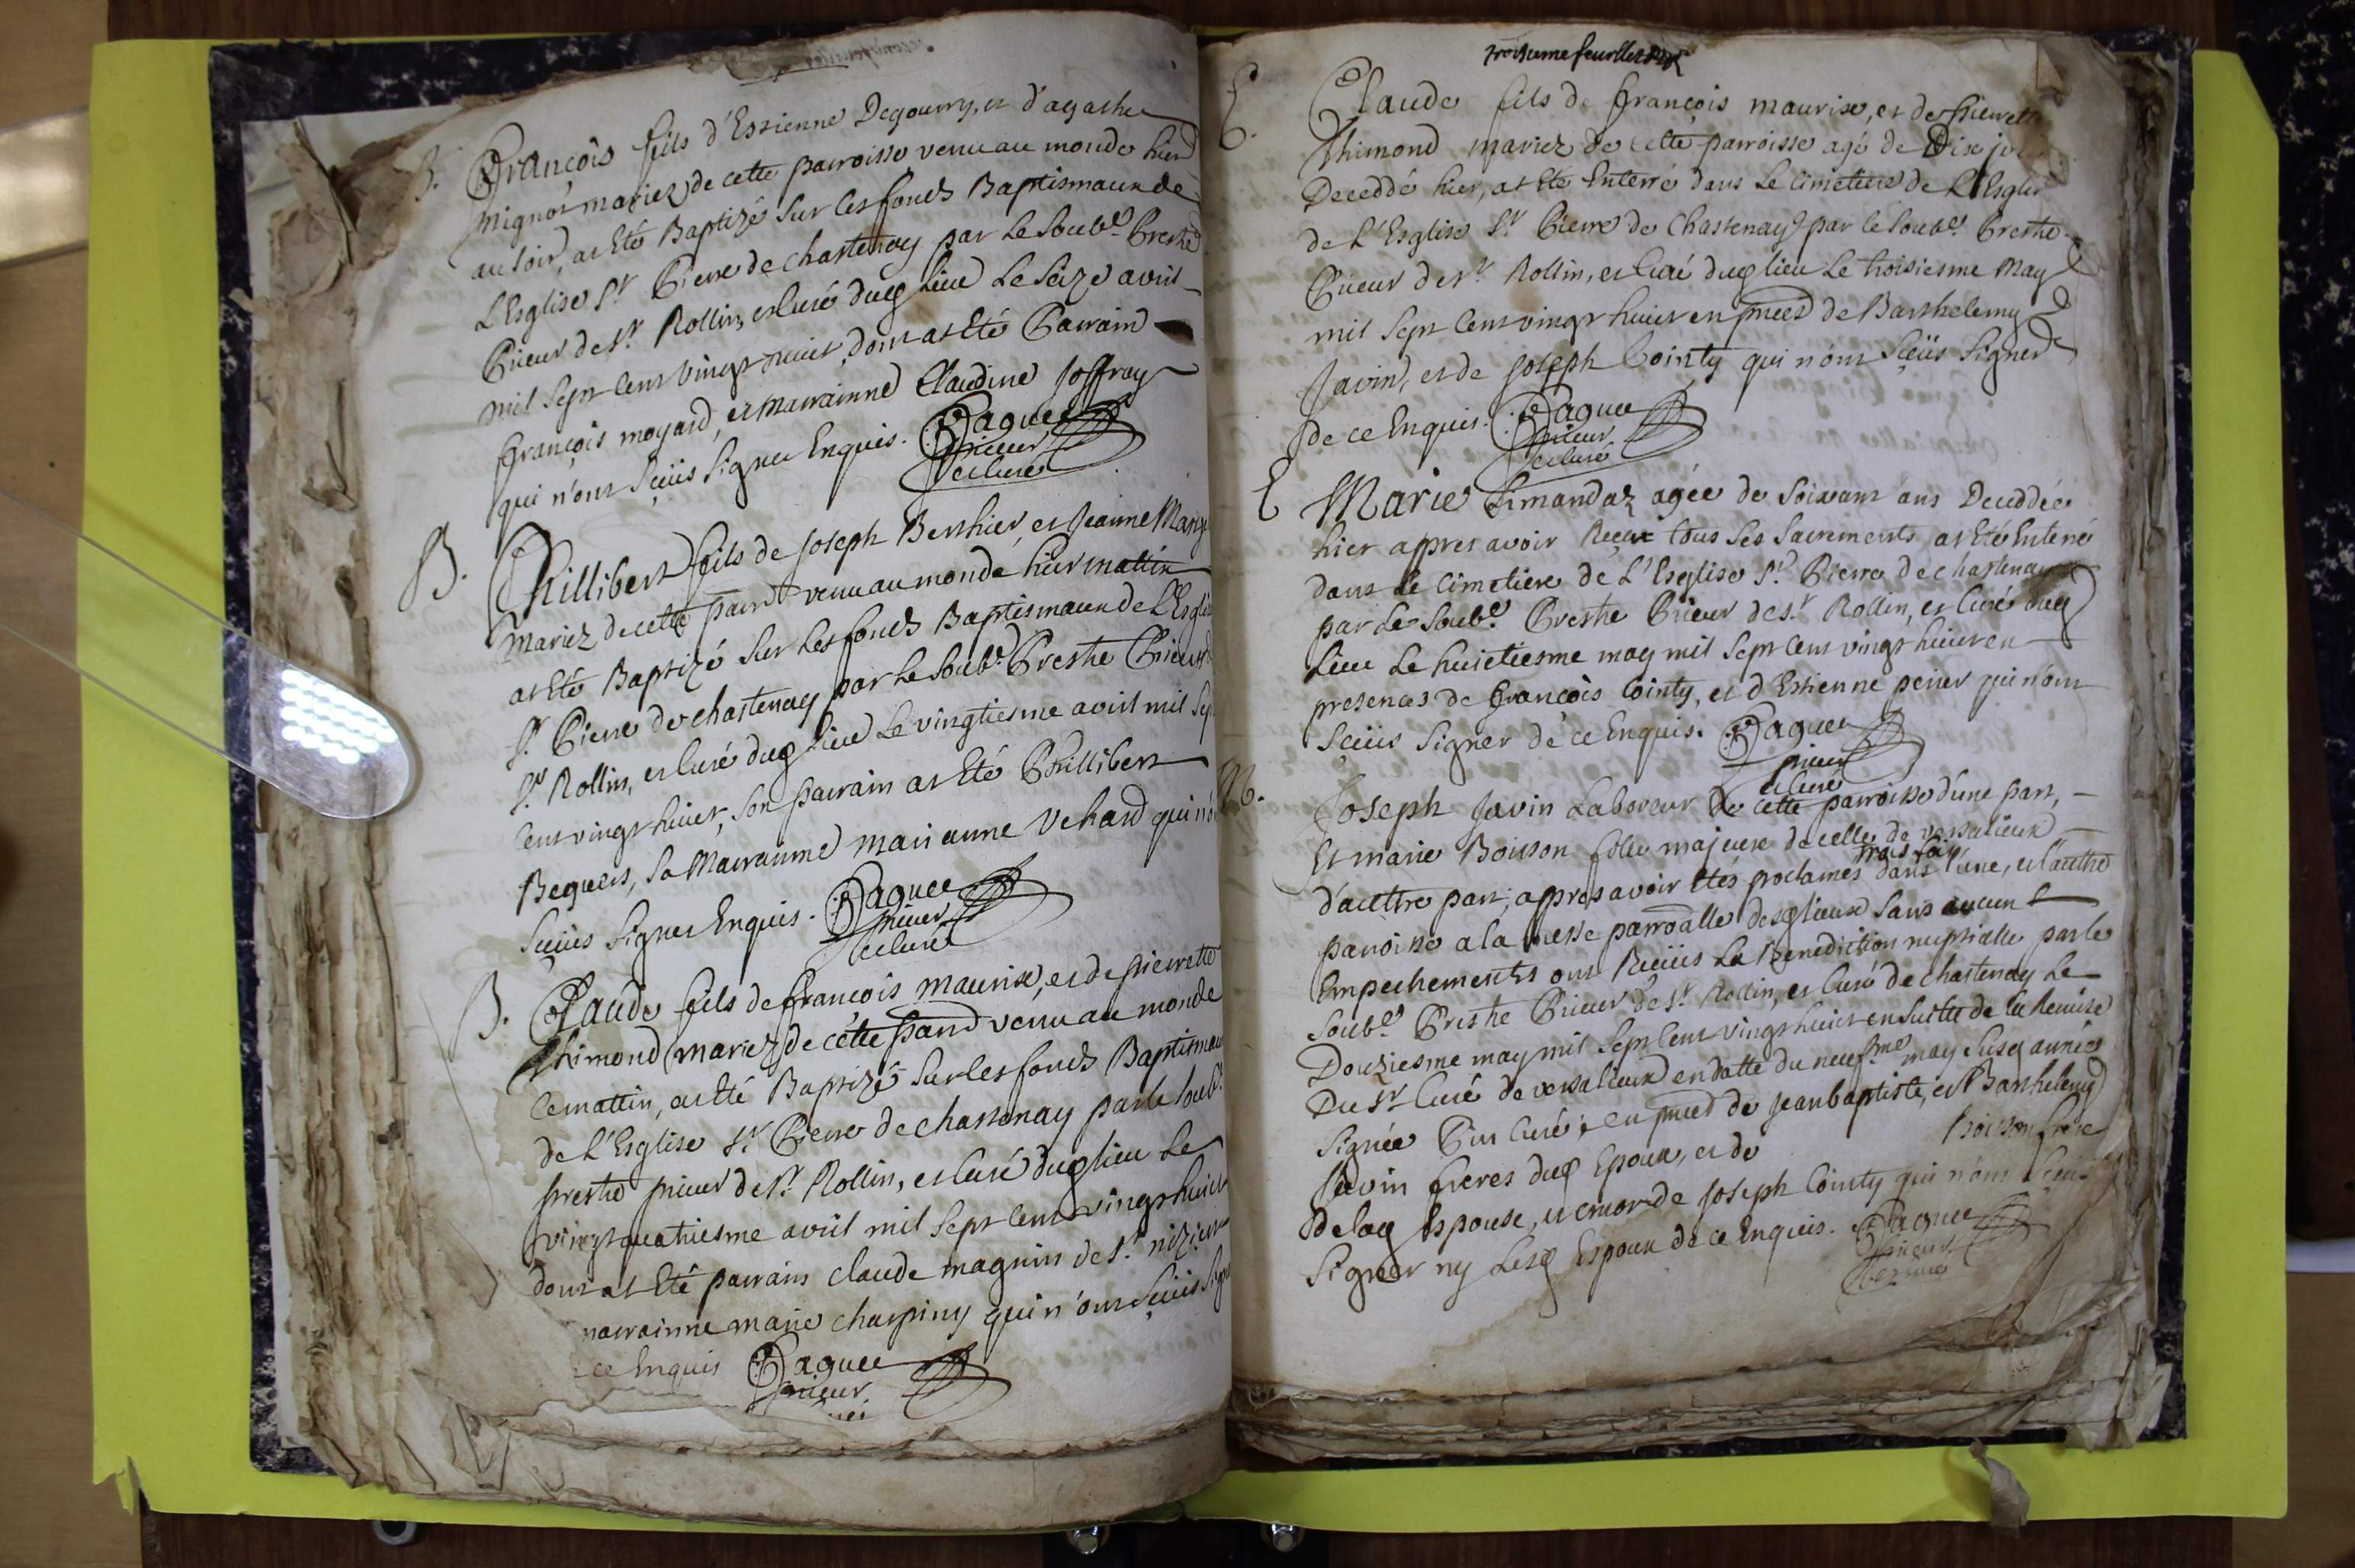 B. François fils d'Estienne Degourry, et d'agathe
mignot mariez de cette parroisse venu au monde hier
au soir, at Eté Baptizé sur les fonds Baptismaux de
L'Esglise St Pierre de chastenay par Le soube Prestre
Prieur de St Rollin, et Curé dud lieu Le seize avril
mil sept Cent vingt huict, dont at Eté Parrain
françois moyard, et marrainne Claudine Joffray
qui n'ont sçeüs signer Enquis. Paquee
prieur
et Curé
B. Phillibert fils de Joseph Berthier, et Jeanne
Mariez de cette parrse venu au monde hier mattin
at Eté Baptizé sur Les fonds Baptismaux de L'Esglise
St Pierre de chastenay par Le soube Prestre Prieur
St Rollin, et Curé dud lieu Le vingtiesme avril mil
Cent vingt huict, son parrain at Eté Phillibert
Beguets, sa Marrainne marianne Vehard qui
sçeüs signer Enquis. Paquee
prieur
et Curé
B. Claude fils de françois maurise, et de pierrette
Thimond mariez de cette parrse venu au monde
Ce mattin, at Eté Baptizé sur les fonds
de L'Esglise St Pierre de chastenay par le soube
prestre prieur de St Rollin, et Curé dud lieu Le
vingt quatriesme avril mil sept Cent vingt huict
dont at Eté parrain claude magnin de St nizier
marrainne marie charpiny qui n'ont sçeüs
ce Enquis Paquee
prieur
troisieme feuillet
E. Claude fils de françois maurise, et de pierrette
Thimond mariez de cette parroisse agé de Dix
Deceddé hier, at Eté Enterré dans Le Cimetiere de L'Esglise
de L'Esglise St Pierre de Chastenay par le soube Prestre
Prieur de St Rollin, et Curé dud lieu Le troisiesme May
mil sept Cent vingt huict en pnces de Barthelemy
Javin, et de Joseph Cointy qui n'ont sçeüs signer
de ce Enquis. Paquee
prieur
et Curé
E Marie Limandaz agée de soixant ans Deceddée
hier appres avoir Reçeu tous ses sacrements at Eté Enterré
dans Le Cimetiere de L'Esglise St Pierre de chastenay
par Le soube Prestre Prieur de St Rollin, et Curé dud
Lieu Le huictiesme may mil sept Cent vingt huict en
presences de françois Cointy, et d'Estienne perier qui n'ont
sçeüs signer de ce Enquis. Paquee
prieur
et Curé
M. Joseph Javin Laboreur de cette parroisse d'une part,
Et marie Boisson fille majeure de celle de versalieux
d'auttre part, appres avoir Etés proclamés trois fois dans l'une, et l'auttre
parroisse a la messe parroalle desd lieux sans aucun
Empechements ont Reçeüs La Benediction nuptialle par le
soube Prestre Prieur de St Rollin, et Curé de chastenay Le
Douziesme may mil sept Cent vingt huict ensuitte de la Remise
Du Sr Curé de versalieux en datte du neufme may susd année
signée Pin Curé; en pnces de Jean baptiste, et Barthelemy
Javin freres dud Epoux, et de Boisson frere
de lad Espouse, et encor de Joseph Cointy qui n'ont sçeüs
signer ny Lesd Espoux de ce Enquis. Paquee
prieur
et Curé